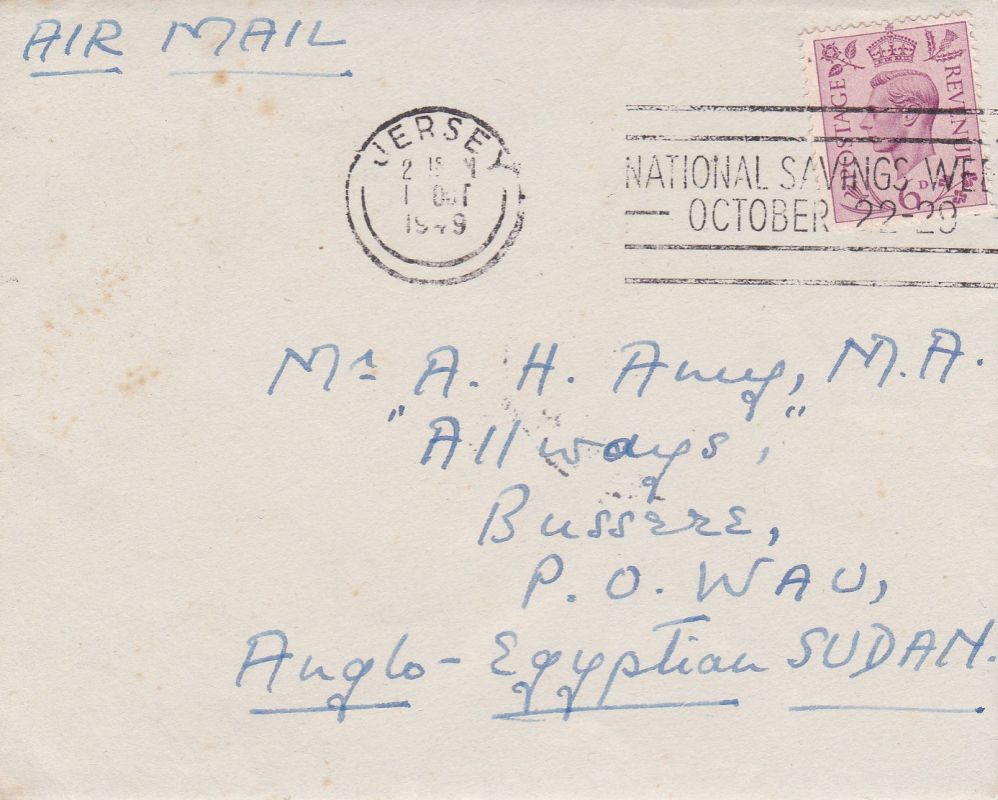 AIR MAIL
POSTAGE REVENUE
6D
JERSEY
1 OCT
1949
NATIONAL SAVINGS WEE
OCTOBER 22-29
Mr A. H. Amy, M.A.
"Allways,"
Bussere,
P. O. WAU,
Anglo-Egyptian SUDAN.